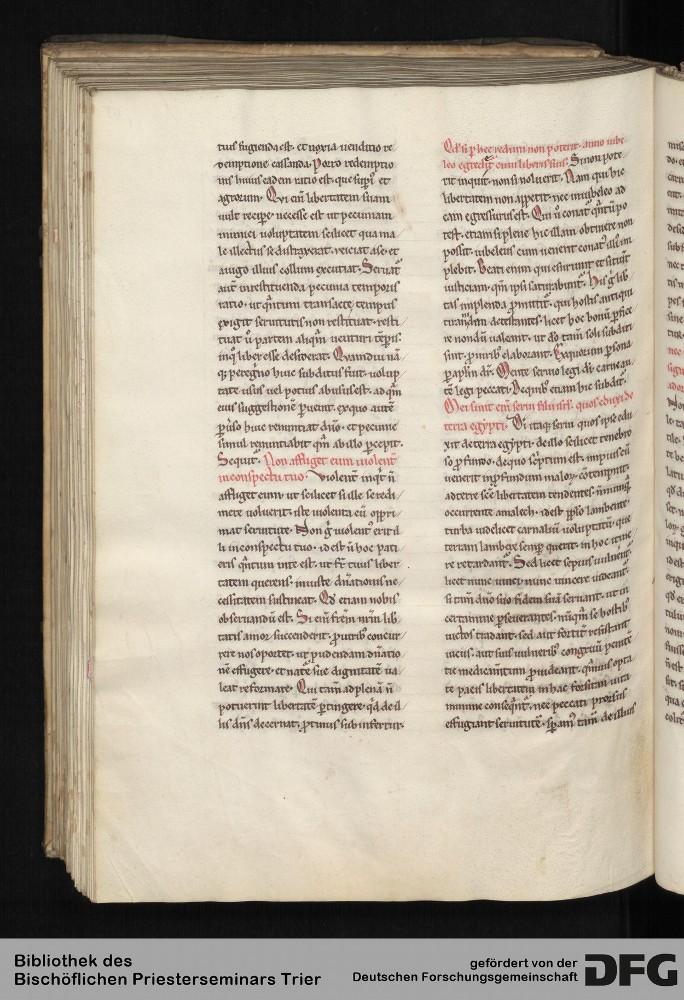 tius fugienda est. et noxia uenditio re
demptione cassanda. Porro redemptio
nis huius eadem ratio est. que sup̄i et
agrorum. Qui eni libertatem suam
uult recipe. necesse est ut pecuniam
inimici uoluptatem scilicet qua ma
le illectus se distraxerat. reiciat a se. et
a iugo illius collum excutiat. Seruat̄
aut̄ in restituenda pecunia temporis
ratio. ut q̄ntum transacte tempus
exigit seruitutis non restituat. resti
tuat ū partem aliq̄m uenturi tēpis.
in q̄ liber esse desiderat. Quamdiu nā
q̄ peregno huic subditus fuit. uolup
tate usus uel potius abusus est. ad q̄m
eius suggestione puenit. ex quo autē
p̄uiso huic renuntiat dn̄o. et pecunie
simul renuntiabit q̄m ab illo p̄cepit.
Sequit̄. Non affliget eum uiolent̄
in conspectu tuo. Violent̄ inq̄t n̄
affliget eum. ut scilicet si ille se redi
mere uoluerit. iste uiolenta eū oppri
mat seruitute. Non ḡ uiolent᷒ erit il
li in conspectu tuo. id est n̄ hoc pati
eris q̄ntum in te est. ut fr̄ tuus liber
tatem querens. iniuste dn̄ationis ne
cessitatem sustineat. Qd̄ etiam nobis
obseruandū est. Si eni fr̄em nr̄m lib
tatis amor succenderit. p̄urib᷒ concur
rere nos oportet. ut pudendam dn̄atio
nē effugere. et nat̄e sue dignitatē ua
leat reformare. Qui tam̄ ad plenā n̄
potuerint libertatē ptingere. q̄d de il
lis dn̄s decernat. p̄tinus sub infertur.
Qd̄ si p hec redimi non poterit. anno iube
leo egredit̄ cum liberis suis. Si non pote
rit inquit. non si noluerit. Nam qui hic
libertatem non appetit. nec in iubeleo ad
eam egressurus est. Qui ū conat᷒ q̄ntū po
test. etiam si plene hic illam obtinere non
possit. iubeleus cum uenerit conat᷒ illi im
plebit. Beati enim qui esuriunt et sitiunt
iusticiam. qm̄ ipsi saturabunt̄. His ḡ lib
tas implenda p̄mittit̄. qui hostis antiqui
tirannidem detestantes. licet hoc bonū p̄fice
re nondū ualeant. ut dō tam̄ soli subditi
sint. p̄uirib᷒ elaborant. Ex quorum psona
p apl̄m dr̄. Mente seruio legi di. carne au
tē legi peccati. De quib᷒ etiam hic subdit̄.
Mei sunt eni serui filii isr̄l. quos eduxi de
terra egypti. Di itaq̨ serui quos ipse edu
xit de terra egypti. de illo scilicet tenebro
so p̄fundo. de quo scriptum est. impius cū
uenerit in p̄fundum malor̄. cōtempnit.
ad terre scē libertatem tendentes. n̄nunq̄
occurrente amalech. id est pp̄lo lambente.
turba uidelicet carnaliū uoluptatū. que
terram lambere semp querit. in hoc itine
re retardant̄. Sed licet sepius uulnerent̄.
licet nunc uinci nunc uincere uideant̄.
si tam̄ dn̄o suo fidem suā seruant. ut in
certamine pseuerantes. nūq̄m se hostib᷒
uictos tradant. sed aut fortit̄ resistant
uiciis. aut suis uulnerib᷒ congruū penitē
tie medicam̄tum p̄uideant. q̄muis opta
te pacis libertatem in hac forsitan uita
minime conseq̄nt̄. nec peccati p̄rorsus
effugiant seruitutē. spam᷒ tam̄ de illius
Bibliothek des
Bischöflichen Priesterseminars Trier
gefördert von der
Deutschen Forschungsgemeinschaft
DFG